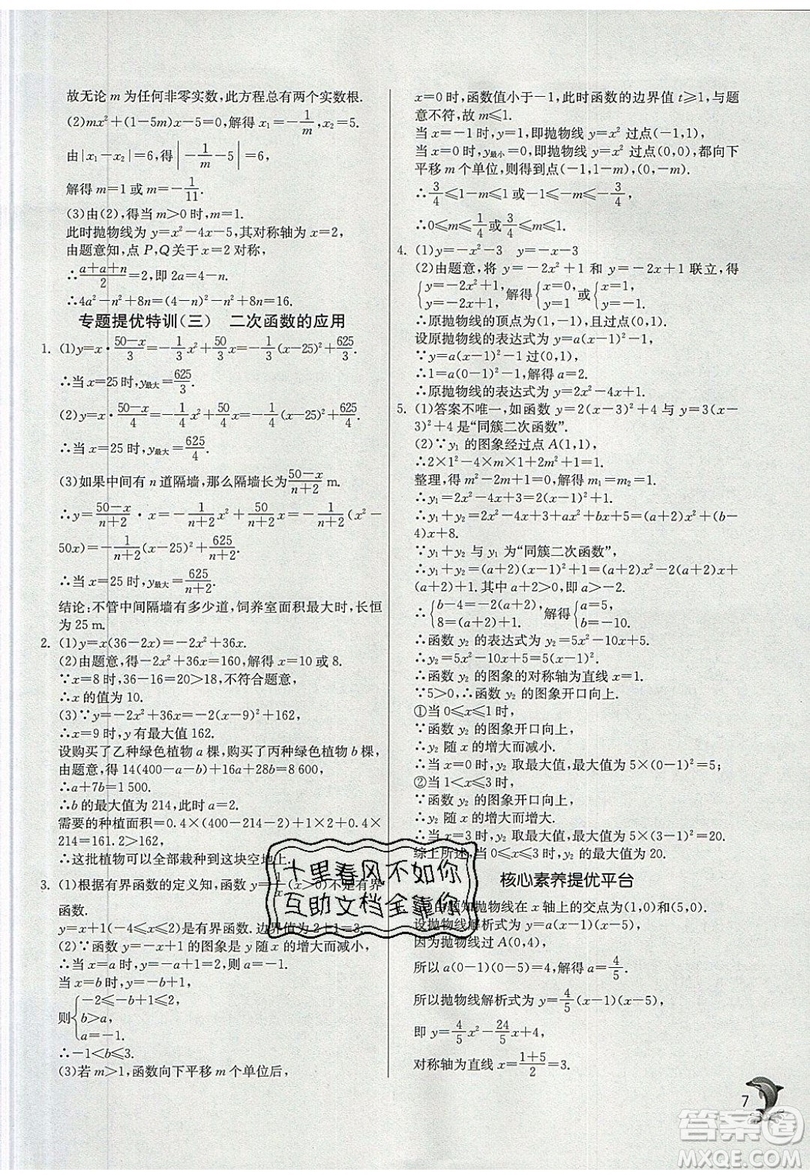 故无论 m 为任何非零实数,此方程总有两个实数根.
(2)mx²+(1-5m)x-5=0,解得 x₁=-1/m,x₂=5.
由|x₁-x₂|=6,得|-1/m-5|=6,
解得 m=1 或 m=-1/11.
(3)由(2),得当 m>0 时,m=1.
此时抛物线为 y=x²-4x-5,其对称轴为 x=2.
由题意知,点 P,Q 关于 x=2 对称,
∴(a+a+n)/2=2,即 2a=4-n.
∴4a²-n²+8n=(4-n)²-n²+8n=16.
专题提优特训(三) 二次函数的应用
1. (1)y=x·(50-x)/3=-1/3(x²-50x)=-1/3(x-25)²+625/3
∴当 x=25 时,y最大=625/3.
(2)y=x·(50-x)/4=-1/4(x²-50x)=-1/4(x-25)²+625/4
∴当 x=25 时,y最大=625/4.
(3)如果中间有 n 道隔墙,那么隔墙长为(50-x)/(n+2) m.
∴y=(50-x)/(n+2)·x=-1/(n+2)x²+50/(n+2)x=-1/(n+2)(x²-
50x)=-1/(n+2)(x-25)²+625/(n+2).
∴当 x=25 时,y最大=625/(n+2).
结论:不管中间隔墙有多少道,饲养室面积最大时,长恒
为 25 m.
2. (1)y=x(36-2x)=-2x²+36x.
(2)由题意,得-2x²+36x=160,解得 x=10 或 8.
∵x=8 时,36-16=20>18,不符合题意,
∴x 的值为 10.
(3)∵y=-2x²+36x=-2(x-9)²+162,
∴x=9 时,y 有最大值 162.
设购买了乙种绿色植物 a 棵,购买了丙种绿色植物 b 棵,
由题意,得 14(400-a-b)+16a+28b=8 600,
∴a+7b=1 500.
∴b 的最大值为 214,此时 a=2.
需要的种植面积=0.4×(400-214-2)+1×2+0.4×
214=161.2>162,
∴这批植物可以全部栽种到这块空地上.
3. (1)根据有界函数的定义知,函数 (x>0)不是有界
函数.
y=x+1(-4≤x≤2)是有界函数.边界值为2+1=3.
(2)∵函数 y=-x+1 的图象是 y 随 x 的增大而减小,
∴当 x=a 时,y=-a+1=2,则 a=-1.
当 x=b 时,y=-b+1.
则{-2≤-b+1<2,
b>a,
a=-1.
∴-1<b≤3.
(3)若 m>1,函数向下平移 m 个单位后,
x=0 时,函数值小于-1,此时函数的边界值 t≥1,与题
意不符,故 m≤1.
当 x=-1 时,y=1,即抛物线 y=x² 过点(-1,1),
当 x=0 时,y最小=0,即抛物线 y=x² 过点(0,0),都向下
平移 m 个单位,则得到点(-1,1-m),(0,-m).
∴3/4≤1-m≤1 或-1≤-m≤-3/4,
∴0≤m≤1/4或3/4≤m≤1.
4. (1)y=-x²-3 y=-x-3
(2)由题意,将 y=-2x²+1 和 y=-x+1 联立,得
{y=-2x²+1, y=-x+1, 解得{x=0, y=1 或{x=1/2, y=1/2.
∴原抛物线的顶点为(1/2,1/2),且过点(0,1).
设原抛物线的表达式为 y=a(x-1/2)²+1/2.
∴1=a(0-1/2)²+1/2,解得 a=2.
∴原抛物线的表达式为 y=2x²-2x+1.
5. (1)答案不唯一,如函数 y=2(x-3)²+4 与 y=(x-
3)²+4 是“同簇二次函数”.
(2)∵y₁ 的图象经过点 A(1,1),
∴2×1²-4×m×1+2m²+1=1.
整理,得 m²-2m+1=0.解得 m₁=m₂=1.
∴y₁=2x²-4x+3=2(x-1)²+1.
∴y₁+y₂=2x²-4x+3+ax²+bx+5=(a+2)x²+(b-
4)x+8.
∵y₁+y₂ 与 y₁ 为“同簇二次函数”,
∴y₁+y₂=(a+2)(x-1)²+1=(a+2)x²-2(a+2)x+
(a+2)+1.
∴{b-4=-2(a+2), 8=(a+2)+1. 解得{a=5, b=-10.
∴函数 y₂ 的表达式为 y₂=5x²-10x+5.
∴y₂=5x²-10x+5=5(x-1)².
∴函数 y₂ 的图象的对称轴为直线 x=1.
∵5>0,∴函数 y₂ 的图象开口向上.
①当 0≤x≤1 时,
∵函数 y₂ 的图象开口向上,
∴y₂ 随 x 的增大而减小.
∴当 x=0 时,y₂ 取最大值,最大值为 5×(0-1)²=5.
②当 1<x≤3 时,
∵函数 y₂ 的图象开口向上,
∴y₂ 随 x 的增大而增大.
∴当 x=3 时,y₂ 取最大值,最大值为 5×(3-1)²=20.
综上所述,当 0≤x≤3 时,y₂ 的最大值为 20.
核心素养提优平台
知抛物线在 x 轴上的交点为(1,0)和(5,0).
设抛物线解析式为 y=a(x-1)(x-5).
因为抛物线过 A(0,4),
所以 a(0-1)(0-5)=4,解得 a=4/5,
所以抛物线解析式为 y=4/5(x-1)(x-5),
即 y=4/5x²-24/5x+4,
对称轴为直线 x=(1+5)/2=3.
7
十里春风不如你
互助文档全靠你
答案圈
MXQE.COM